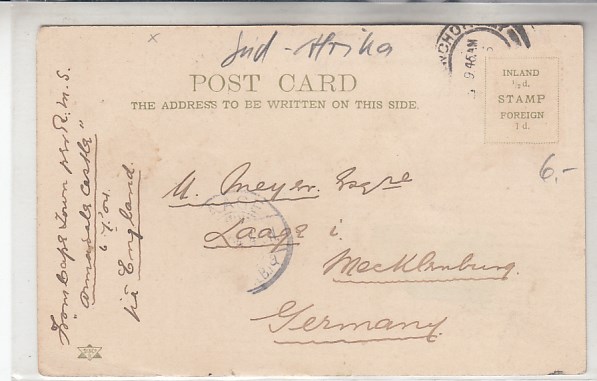 Süd-Afrika
POST CARD
THE ADDRESS TO BE WRITTEN ON THIS SIDE.
9.45AM
INLAND
½d.
STAMP
FOREIGN
1d.
6,-
U. Meyer. Esqre
Laage i.
Mecklenburg.
Germany.
From Cape Town per R.M.S.
Armadale Castle"
6.7.04.
via England.